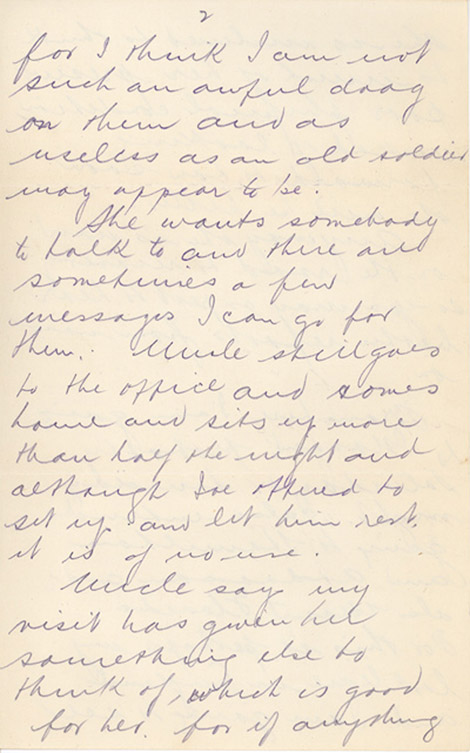 2
for I think I am not
such an awful drag
on them and as
useless as an old soldier
may appear to be.
She wants somebody
to talk to and there are
sometimes a few
messages I can go for
them. Uncle still goes
to the office and comes
home and sits up more
than half the night and
although I've offered to
set up and let him rest,
it is of no use.
Uncle say my
visit has given her
something else to
think of, which is good
for her. for if anything